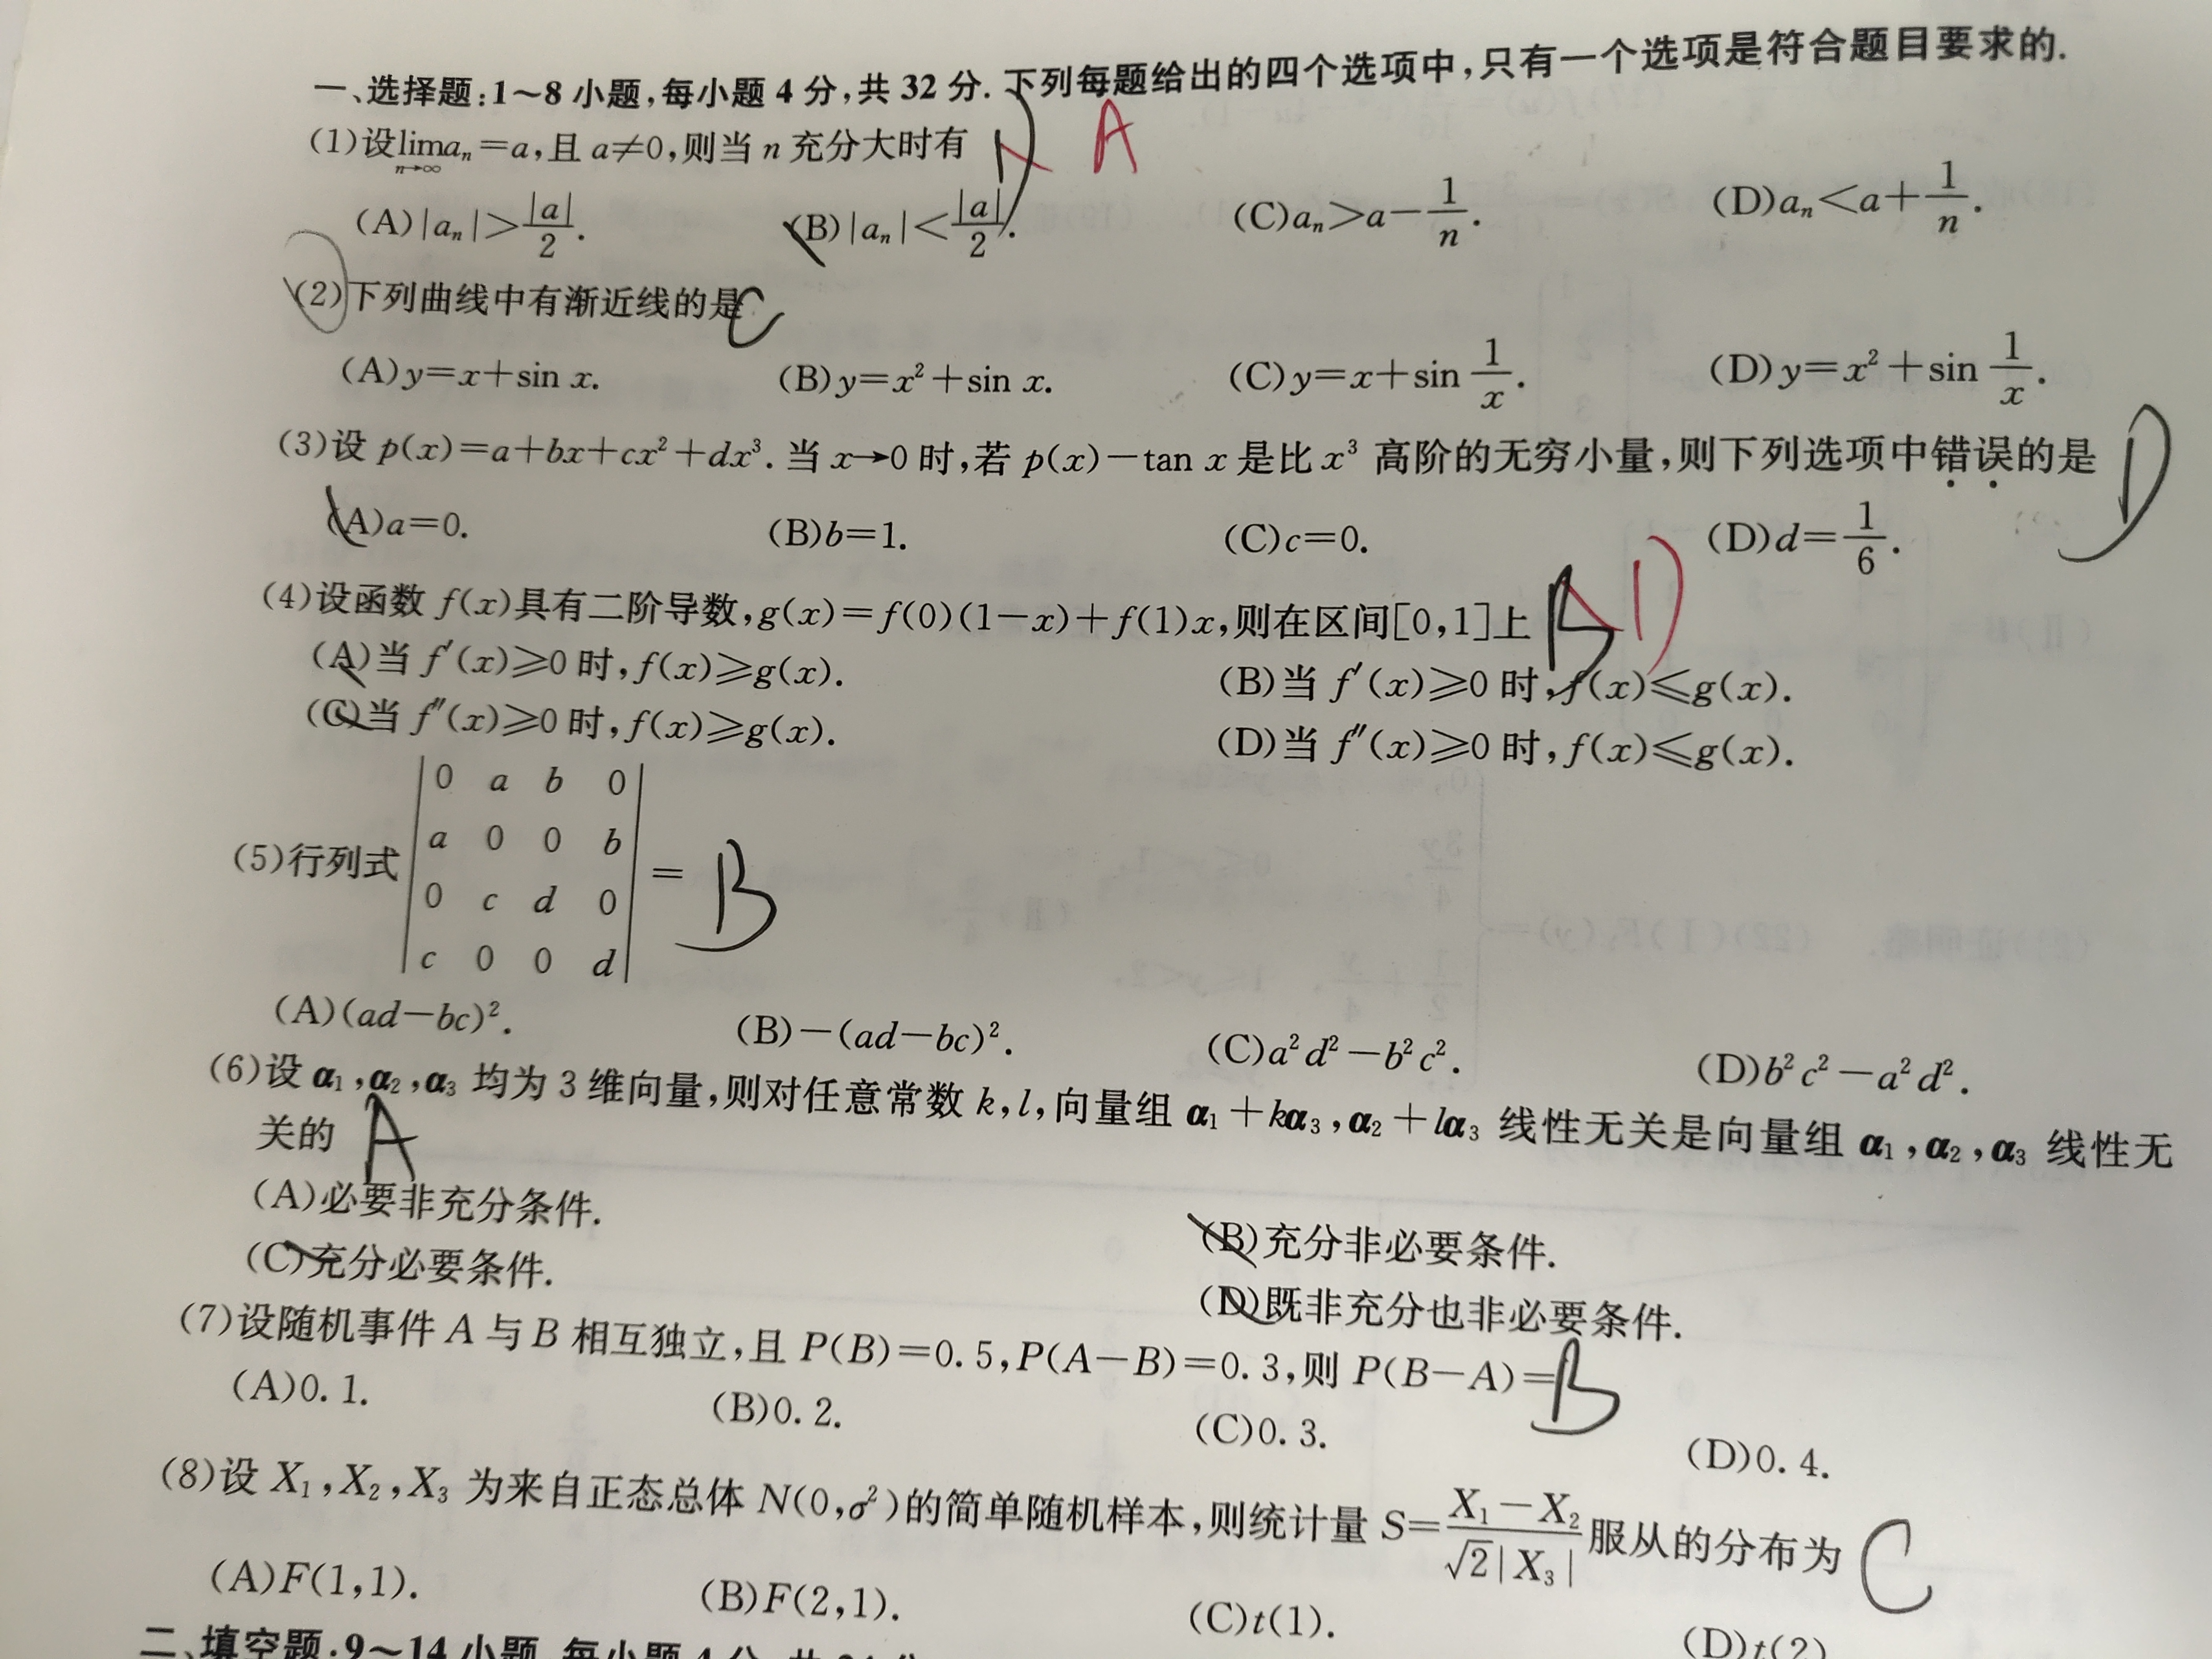 一、选择题:1～8 小题,每小题 4 分,共 32 分. 下列每题给出的四个选项中,只有一个选项是符合题目要求的.
(1)设$\lim\limits_{n\to\infty}a_n=a$,且 a≠0,则当 n 充分大时有 D A
(A)|aₙ|>|a|/2. (B)|aₙ|<|a|/2. (C)aₙ>a−1/n. (D)aₙ<a+1/n.
(2)下列曲线中有渐近线的是 C
(A)y=x+sin x. (B)y=x²+sin x. (C)y=x+sin 1/x. (D)y=x²+sin 1/x.
(3)设 p(x)=a+bx+cx²+dx³. 当 x→0 时,若 p(x)−tan x 是比 x³ 高阶的无穷小量,则下列选项中错误的是 D
(A)a=0. (B)b=1. (C)c=0. (D)d=1/6.
(4)设函数 f(x)具有二阶导数,g(x)=f(0)(1−x)+f(1)x,则在区间[0,1]上 B D
(A)当 f′(x)≥0 时,f(x)≥g(x). (B)当 f′(x)≥0 时,f(x)≤g(x).
(C)当 f″(x)≥0 时,f(x)≥g(x). (D)当 f″(x)≥0 时,f(x)≤g(x).
0 a b 0
a 0 0 b
(5)行列式 = B
0 c d 0
c 0 0 d
(A)(ad−bc)². (B)−(ad−bc)². (C)a²d²−b²c². (D)b²c²−a²d².
(6)设 α₁,α₂,α₃ 均为 3 维向量,则对任意常数 k,l,向量组 α₁+kα₃,α₂+lα₃ 线性无关是向量组 α₁,α₂,α₃ 线性无
关的 A
(A)必要非充分条件. (B)充分非必要条件.
(C)充分必要条件. (D)既非充分也非必要条件.
(7)设随机事件 A 与 B 相互独立,且 P(B)=0.5,P(A−B)=0.3,则 P(B−A)= B
(A)0.1. (B)0.2. (C)0.3. (D)0.4.
(8)设 X₁,X₂,X₃ 为来自正态总体 N(0,σ²)的简单随机样本,则统计量 S=(X₁−X₂)/(√2|X₃|) 服从的分布为 C
(A)F(1,1). (B)F(2,1). (C)t(1). (D)t(2)
二、填空题:9～14 小题,每小题 4 分,共 24 分